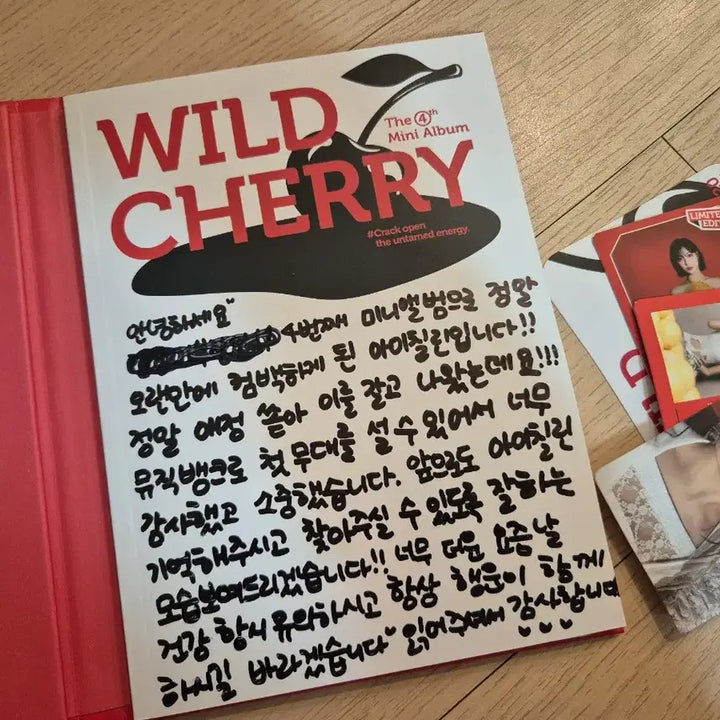 WILD
CHERRY
The ④th
Mini Album
#Crack open
the untamed energy.
안녕하세요
4번째 미니앨범으로 정말
오랜만에 컴백하게 된 아이칠린입니다!!
정말 애정 쏟아 이를 갈고 나왔는데요!!!
뮤직뱅크로 첫 무대를 설 수 있어서 너무
감사했고 소중했습니다. 앞으로도 아이칠린
기억해주시고 찾아주실 수 있도록 잘하는
모습보여드리겠습니다!! 너무 더운 요즘날
건강 항시 유의하시고 항상 행운이 함께
하시길 바라겠습니다 읽어주셔서 감사합니다
LIMITE
EDI